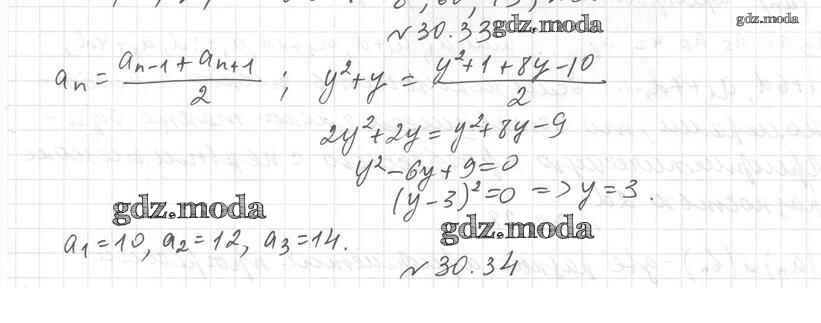 №30.33 gdz.moda gdz.moda
aₙ = (aₙ₋₁ + aₙ₊₁)/2 ; y² + y = (y² + 1 + 8y - 10)/2
2y² + 2y = y² + 8y - 9
y² - 6y + 9 = 0
(y - 3)² = 0 => y = 3.
gdz.moda
a₁ = 10, a₂ = 12, a₃ = 14.
gdz.moda
№30.34